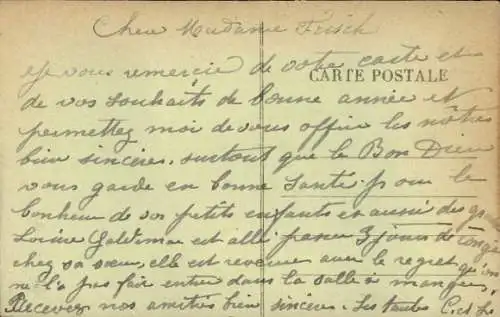 Chere Madame Frisch
Je vous remercie de votre carte et
CARTE POSTALE
de vos souhaits de bonne année et
permettez moi de vous offrir les nôtres
bien sincères. surtout que le Bon Dieu
vous garde en bonne Santé pour le
bonheur de vos petits enfants et aussi des
est allé passer 3 jours de congé
chez sa sœur, elle est revenue avec le regret qu'on
ne l'a pas fait entrer dans la salle à manger,
Recevez nos amitiés bien sincères. Les tantes C. et